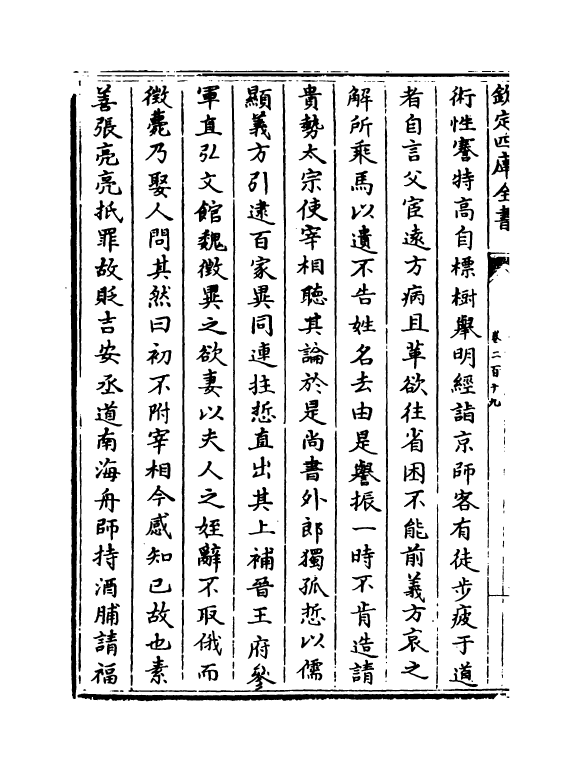 欽定四庫全書
卷二百十九
術性謇特高自標樹舉明經詣京師客有徒步疲于道
者自言父宦遠方病且革欲往省困不能前義方哀之
解所乘馬以遺不告姓名去由是譽振一時不肯造請
貴勢太宗使宰相聽其論於是尚書外郎獨孤悊以儒
顯義方引逮百家異同連拄悊直出其上補晉王府參
軍直弘文館魏徵異之欲妻以夫人之姪辭不取俄而
徵薨乃娶人問其然曰初不附宰相今感知已故也素
善張亮亮抵罪故貶吉安丞道南海舟師持酒脯請福